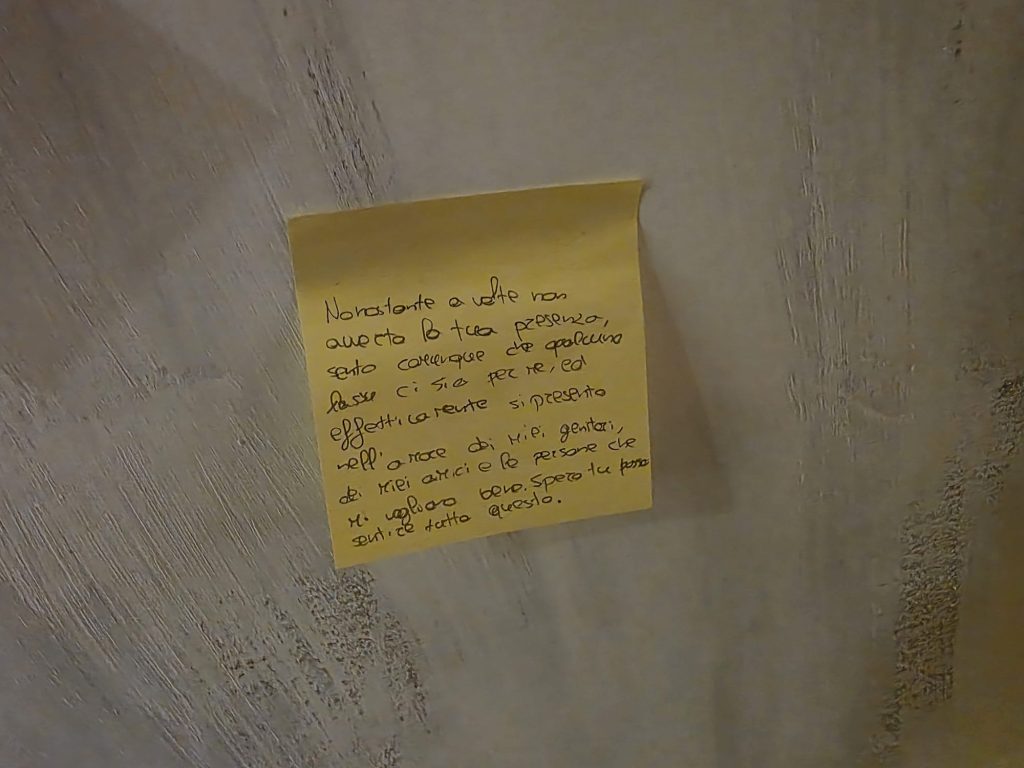 Nonostante a volte non
avverto la tua presenza,
sento comunque che qualcuno
lassù ci sia per me, ed
effettivamente si presenta
nell'amore dei miei genitori,
dei miei amici e le persone che
mi vogliono bene. Spero tu possa
sentire tutto questo.